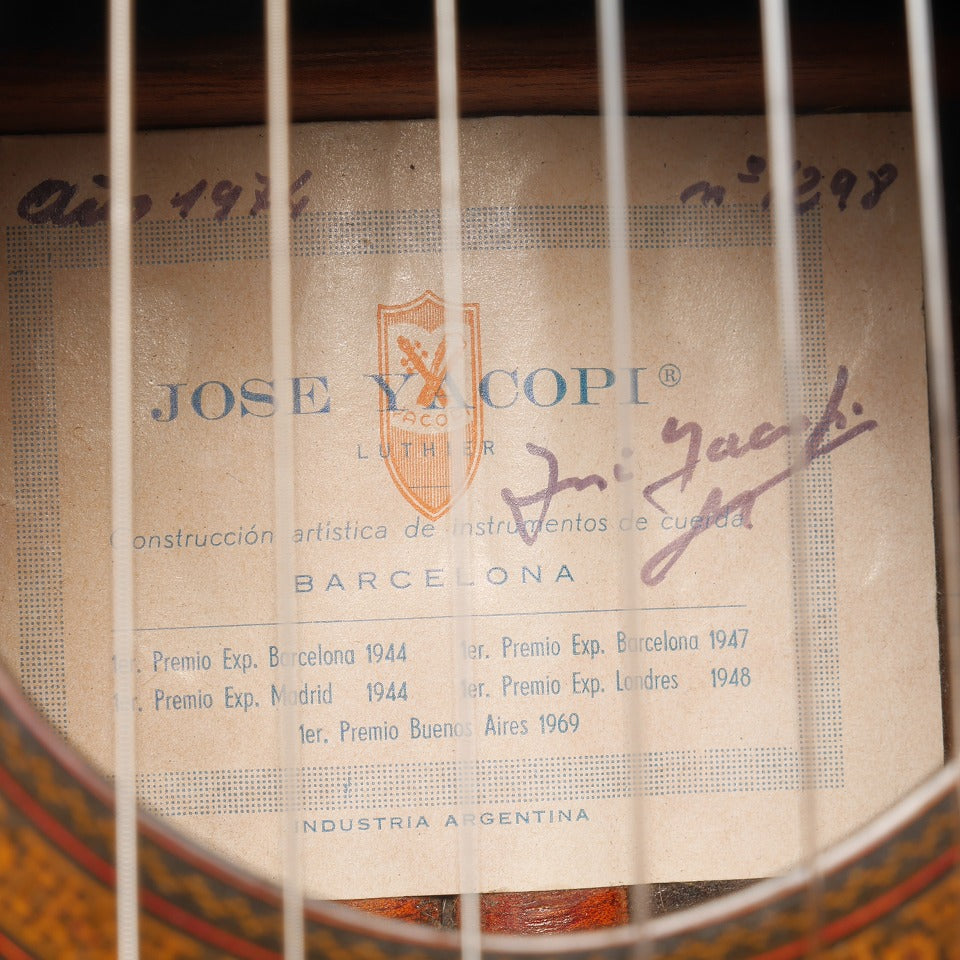 Año 1974 nº 1298
JOSE YACOPI ®
YACOPI
LUTHIER
José Yacopi
Construcción artística de instrumentos de cuerda
BARCELONA
1er. Premio Exp. Barcelona 1944 1er. Premio Exp. Barcelona 1947
1er. Premio Exp. Madrid 1944 1er. Premio Exp. Londres 1948
1er. Premio Buenos Aires 1969
INDUSTRIA ARGENTINA